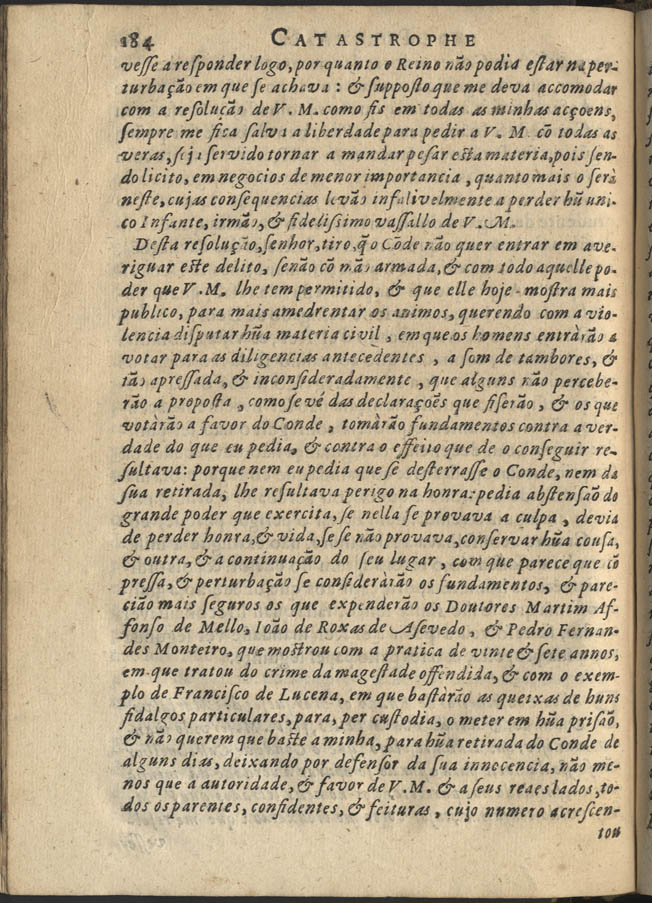 184 CATASTROPHE
vesse a responder logo, por quanto o Reino não podia estar na per-
turbação em que se achava: & supposto que me deva accomodar
com a resolução de V. M. como fis em todas as minhas acçoens,
sempre me fica salva a liberdade para pedir a V. M. cõ todas as
veras, seja servido tornar a mandar pesar esta materia, pois sen-
do licito, em negocios de menor importancia, quanto mais o será
neste, cujas consequencias levão infalivelmente a perder hũ uni-
co Infante, irmão, & fidelissimo vassallo de V. M.
Desta resolução, senhor, tiro, q̃ o Cõde não quer entrar em ave-
riguar este delito, senão cõ mão armada, & com todo aquelle po-
der que V. M. lhe tem permitido, & que elle hoje mostra mais
publico, para mais amedrentar os animos, querendo com a vio-
lencia disputar hũa materia civil, em que os homens entràrão a
votar para as diligencias antecedẽtes, a som de tambores, &
tão apressada, & inconsideradamente, que alguns não percebe-
rão a proposta, como se vé das declaraçoẽs que fiserão, & os que
votàrão a favor do Conde, tomàrão fundamentos contra a ver-
dade do que eu pedia, & contra o effeito que de o conseguir re-
sultava: porque nem eu pedia que se desterrasse o Conde, nem da
sua retirada, lhe resultava perigo na honra: pedia abstensão do
grande poder que exercita, se nella se provava a culpa, devia
de perder honra, & vida, se se não provava, conservar hũa cousa,
& outra, & a continuação do seu lugar, com que parece que cõ
pressa, & perturbação se consideràrão os fundamentos, & pare-
cião mais seguros os que expenderão os Doutores Martim Af-
fonso de Mello, Ioão de Roxas de Asevedo, & Pedro Fernan-
des Monteiro, que mostrou com a pratica de vinte & sete annos,
em que tratou do crime da magestade offendida, & com o exem-
plo de Francisco de Lucena, em que bastàrão as queixas de huns
fidalgos particulares, para, per custodia, o meter em hũa prisão,
& não querem que baste a minha, para hũa retirada do Conde de
alguns dias, deixando por defensor da sua innocencia, não me-
nos que a autoridade, & favor de V. M. & a seus reaes lados, to-
dos os parentes, confidentes, & feituras, cujo numero acrescen-
tou